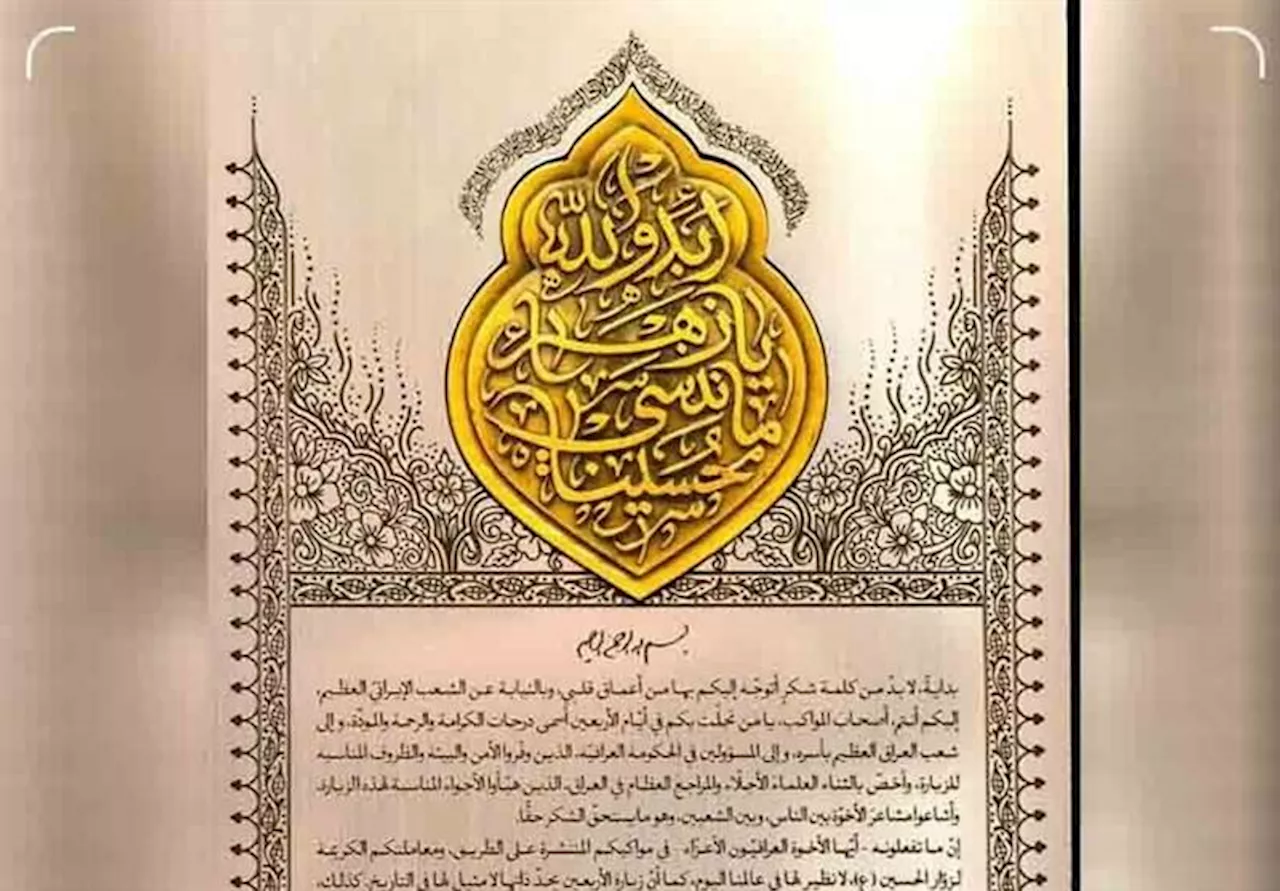 أبد والله
يا زهراء
ما ننسى
حسيناه
بداية، لا بدّ من كلمة شكرٍ أتوجّه إليكم بها من أعماق قلبي، وبالنيابة عن الشعب الإيرانيّ العظيم،
إليكم أنتم، أصحاب المواكب، يا من تجلّت بكم في أيّام الأربعين أسمى درجات الكرامة والرحمة والمودّة، وإلى
شعب العراق العظيم بأسره، وإلى المسؤولين في الحكومة العراقيّة، الذين وفّروا الأمن والبيئة والظروف المناسبة
للزيارة، وأخصّ بالثناء العلماءَ الأجلّاء والمراجع العظام في العراق، الذين هيّأوا الأجواء المناسبة لهذه الزيارة،
وأشاعوا مشاعرَ الأخوّة بين الناس، وبين الشعبين، وهو ما يستحقّ الشكر حقًّا.
إنّ ما تفعلونه - أيّها الأخوة العراقيّون الأعزّاء - في مواكبكم المنتشرة على الطريق، ومعاملتكم الكريمة
لزوّار الحسين (ع)، لا نظير لها في عالمنا اليوم، كما أنّ زيارة الأربعين بحدّ ذاتها لا مثيل لها في التاريخ. كذلك،